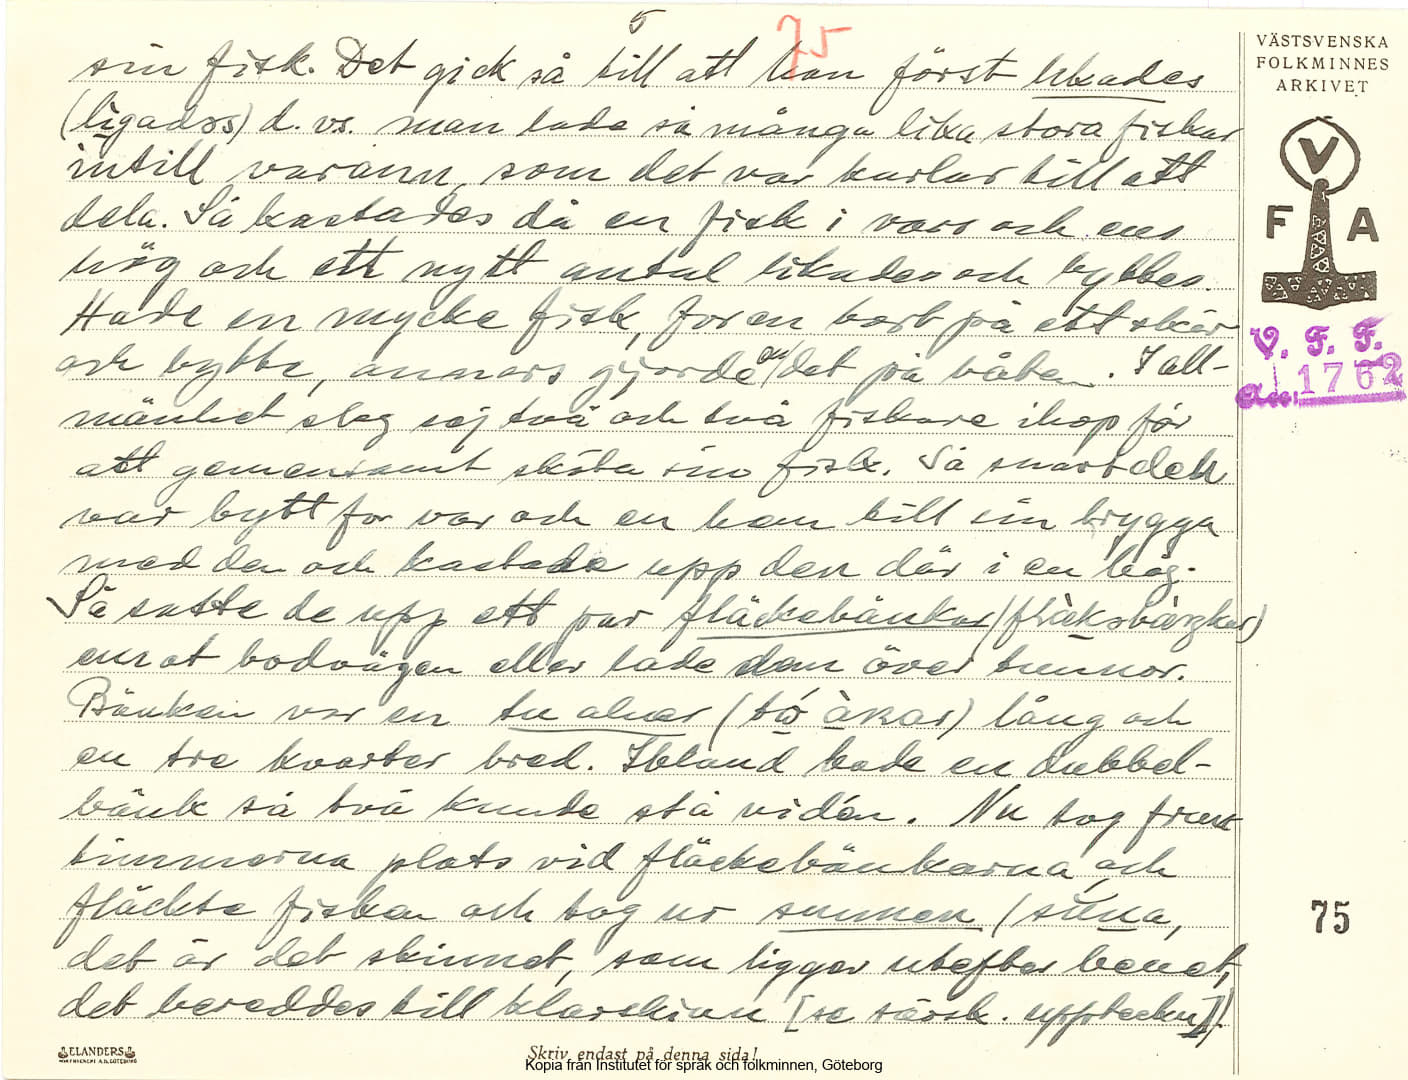 5
75
sin fisk. Det gick så till att han först likades
(ligadəs) d. vs. man lade så många lika stora fiskar
intill varann, som det var karlar till att
dela. Så kastades då en fisk i vars och ens
hög och ett nytt antal likades och byttes.
Hade en mycke fisk, for en bort på ett skär
och bytte, annars gjorde en det på båten. I all-
mänhet slog sej två och två fiskare ihop för
att gemensamt sköta sin fisk. Så snart den
var bytt for var och en hem till sin brygga
med den och kastade upp den där i en hög.
Så satte de upp ett par fläckebänkar
emot bodvägen eller lade dem över tunnor.
Bänken var en tu alnar (tó àlnar) lång och
en tre kvarter bred. Ibland hade en dubbel-
bänk så två kunde stå vid en. Nu tog fruns
timmerna plats vid fläckebänkarna, och
fläckte fisken och tog ur summen (suma,
det är det skinnet, som ligger utefter benet,
det bereddes till klarskinn [se särsk. uppteckn.]).
VÄSTSVENSKA
FOLKMINNES
ARKIVET
V
F A
V. F. F.
Acc: 1762
75
ELANDERS
Skriv endast på denna sida!
Kopia från Institutet för språk och folkminnen, Göteborg